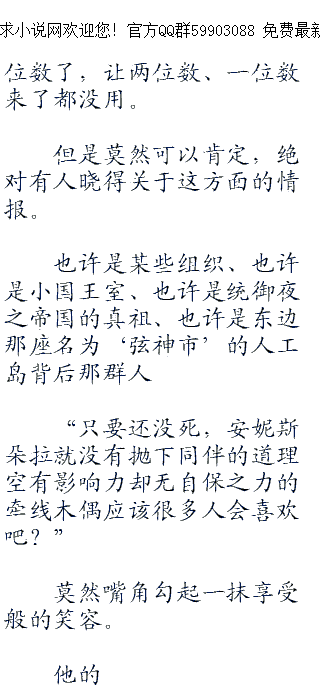 求小说网欢迎您！官方QQ群59903088 免费最新
位数了，让两位数、一位数
来了都没用。
但是莫然可以肯定，绝
对有人晓得关于这方面的情
报。
也许是某些组织、也许
是小国王室、也许是统御夜
之帝国的真祖、也许是东边
那座名为‘弦神市’的人工
岛背后那群人
“只要还没死，安妮斯
朵拉就没有抛下同伴的道理
空有影响力却无自保之力的
牵线木偶应该很多人会喜欢
吧？”
莫然嘴角勾起一抹享受
般的笑容。
他的